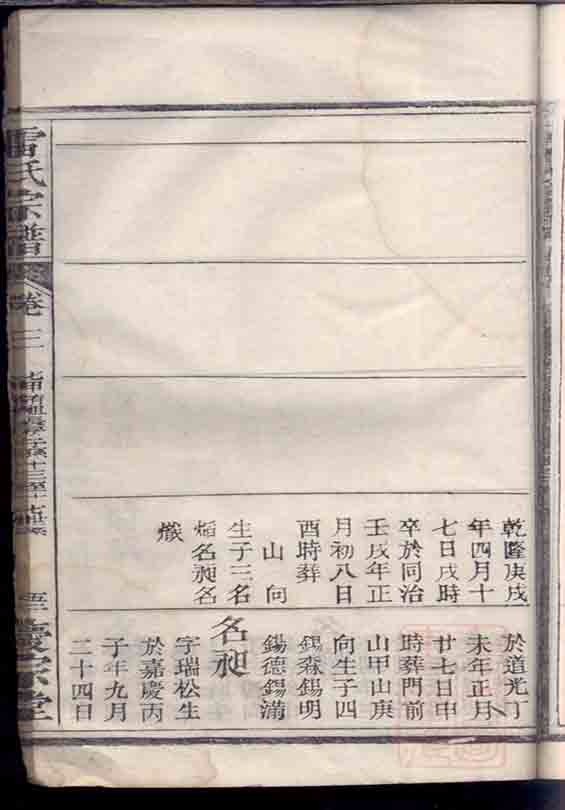 乾隆庚戌
年四月十
七日戌時
卒於同治
壬戌年正
月初八日
酉時葬
山向
生子三名
名昶名
熾
於道光丁
未年正月
廿七日申
時葬門前
山甲山庚
向生子四
錫森錫明
錫德錫滿
名昶
字瑞松生
於嘉慶丙
子年九月
二十四日
雷氏宗譜
卷三